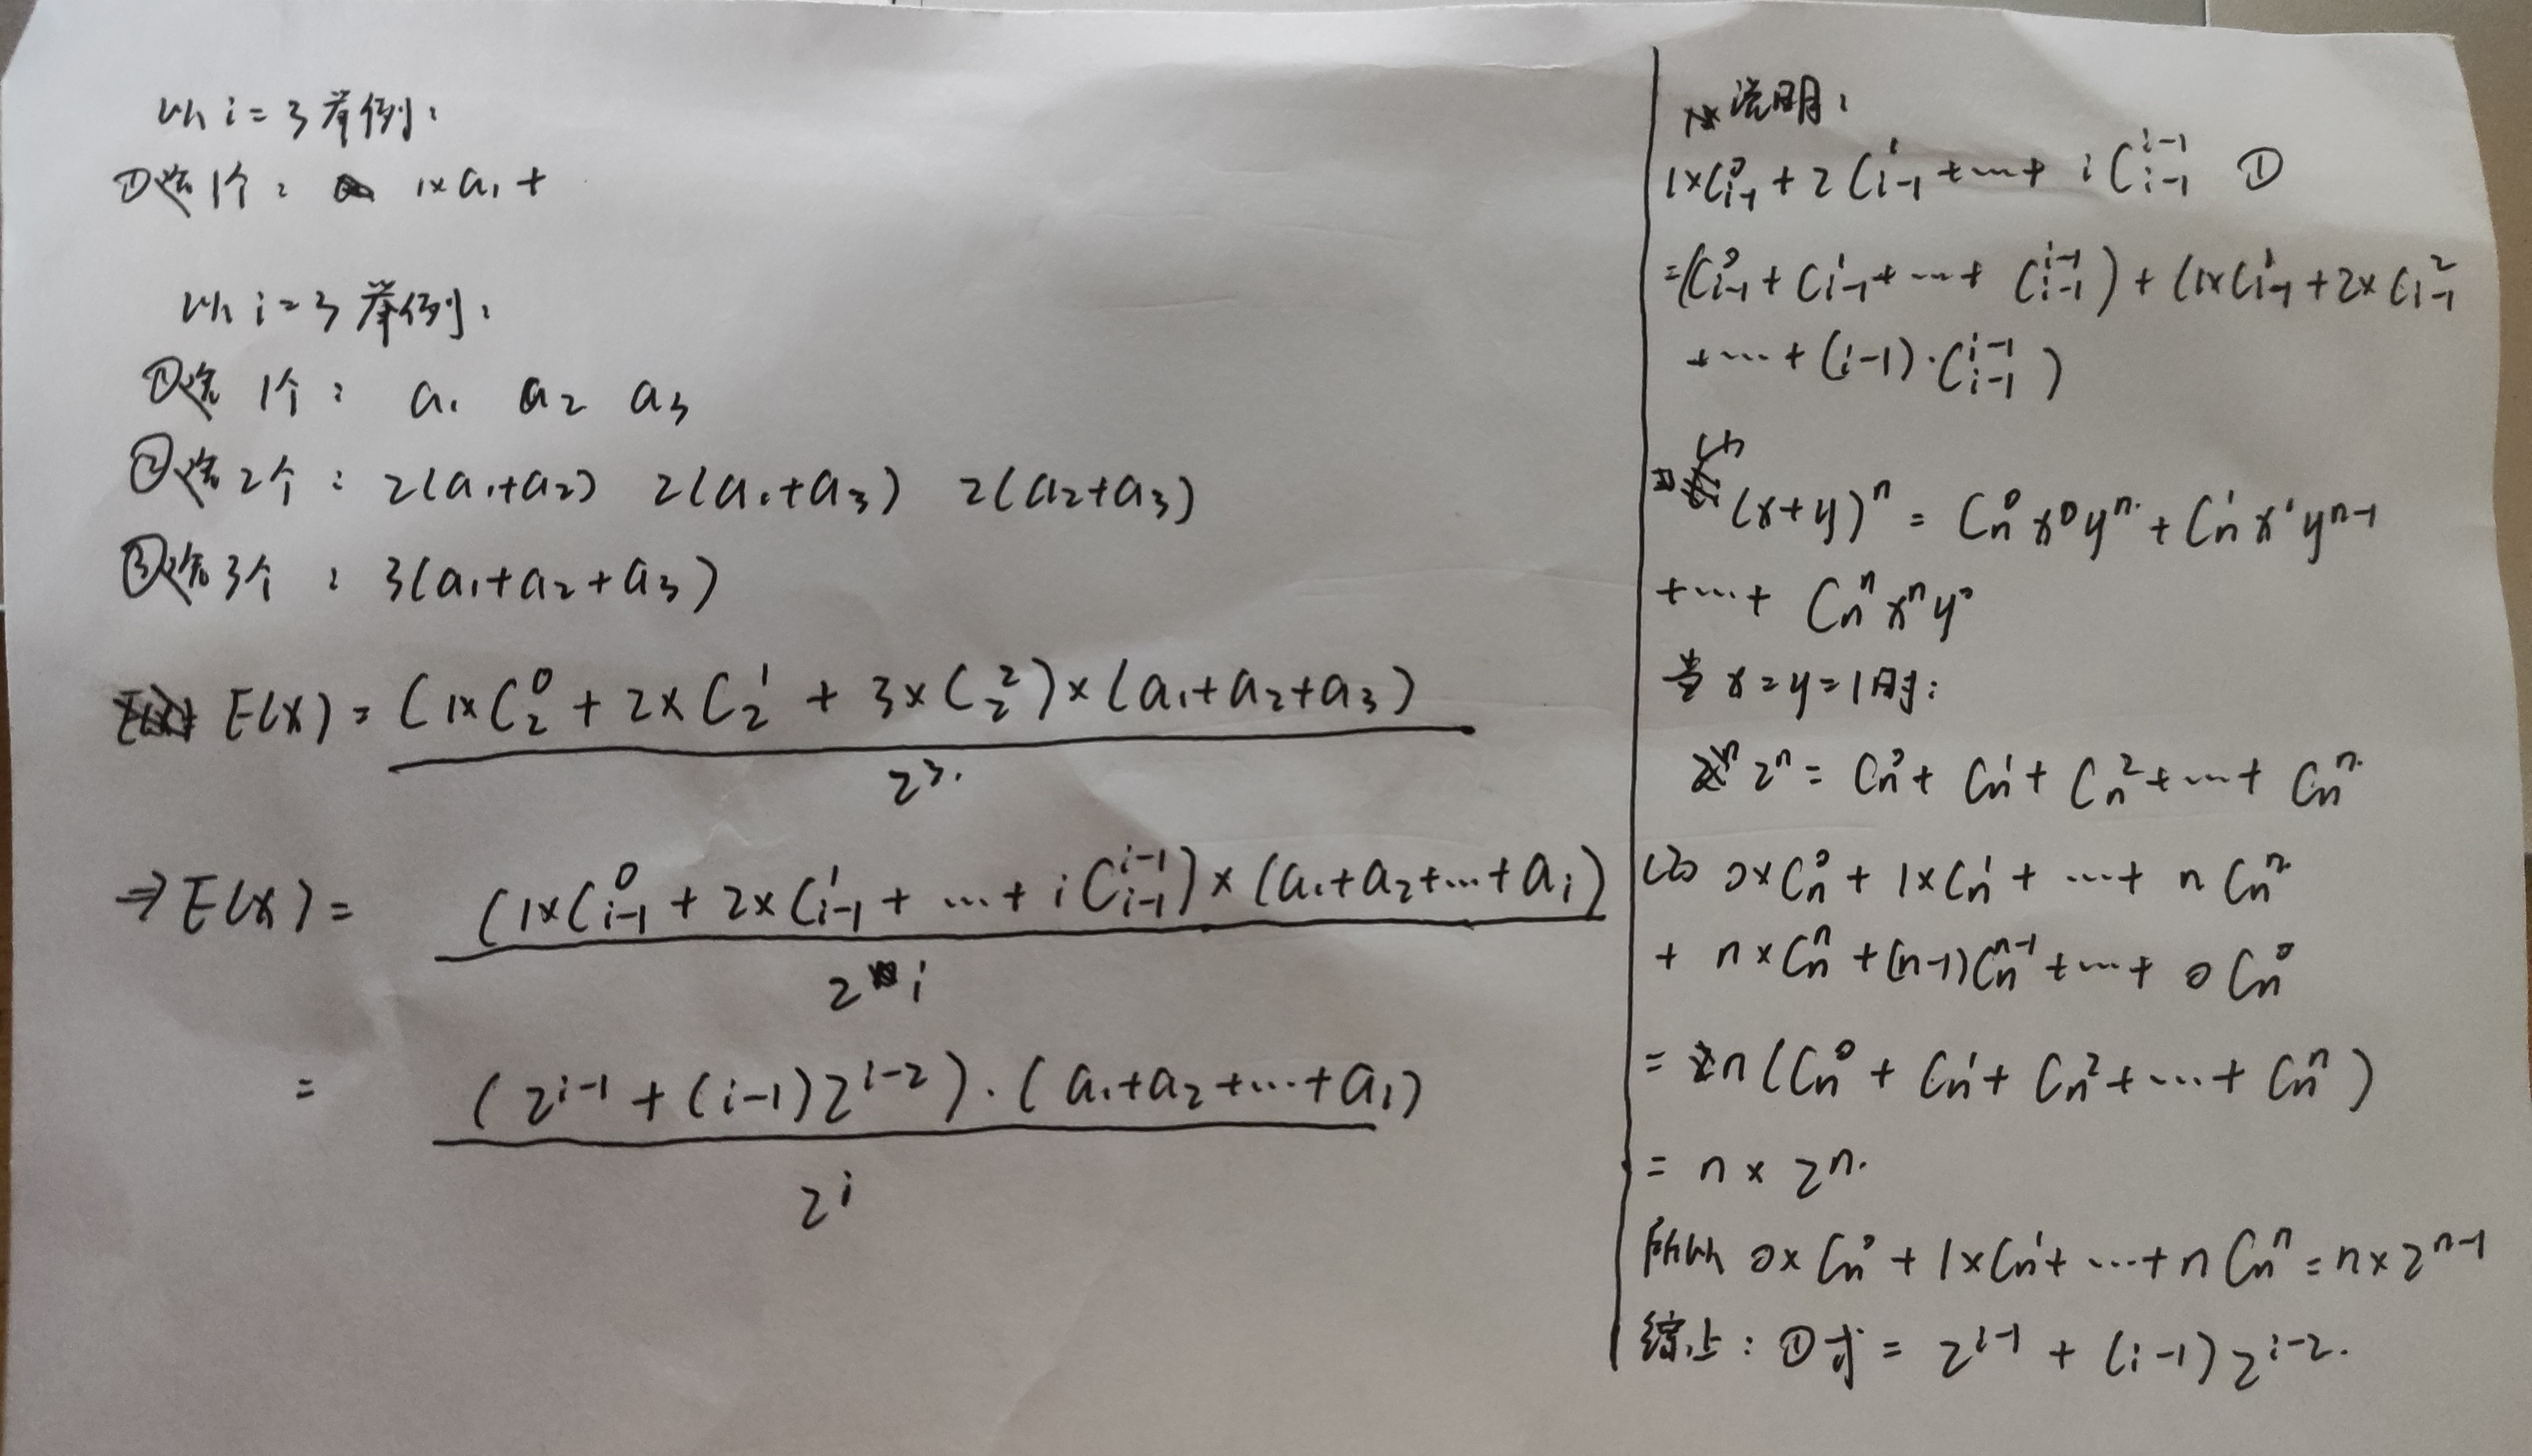 以 i=3 举例:
①选1个: 1×a₁+
以 i=3 举例:
①选 1个: a₁ a₂ a₃
②选2个: 2(a₁+a₂) 2(a₁+a₃) 2(a₂+a₃)
③选3个: 3(a₁+a₂+a₃)
E(x) = (1×C₂⁰ + 2×C₂¹ + 3×C₂²)×(a₁+a₂+a₃)
2³.
⇒E(x) = (1×Cᵢ₋₁⁰ + 2×Cᵢ₋₁¹ + … + i Cᵢ₋₁ⁱ⁻¹)×(a₁+a₂+…+aᵢ)
2ⁱ
= (2ⁱ⁻¹ + (i-1)2ⁱ⁻²)·(a₁+a₂+…+aᵢ)
2ⁱ
说明:
1×Cᵢ₋₁⁰ + 2Cᵢ₋₁¹ + … + i Cᵢ₋₁ⁱ⁻¹ ①
=(Cᵢ₋₁⁰ + Cᵢ₋₁¹ + … + Cᵢ₋₁ⁱ⁻¹) + (1×Cᵢ₋₁¹ + 2×Cᵢ₋₁²
+…+ (i-1)·Cᵢ₋₁ⁱ⁻¹)
(1)
(x+y)ⁿ = Cₙ⁰x⁰yⁿ + Cₙ¹x¹yⁿ⁻¹
+…+ Cₙⁿxⁿy⁰
当 x=y=1时:
2ⁿ = Cₙ⁰ + Cₙ¹ + Cₙ² +…+ Cₙⁿ
(2) 0×Cₙ⁰ + 1×Cₙ¹ + …+ nCₙⁿ
+ n×Cₙⁿ + (n-1)Cₙⁿ⁻¹ +…+ 0Cₙ⁰
= n(Cₙ⁰ + Cₙ¹ + Cₙ² +…+ Cₙⁿ)
= n × 2ⁿ.
所以 0×Cₙ⁰ + 1×Cₙ¹ + …+ nCₙⁿ = n×2ⁿ⁻¹
综上: ①式 = 2ⁱ⁻¹ + (i-1)2ⁱ⁻².